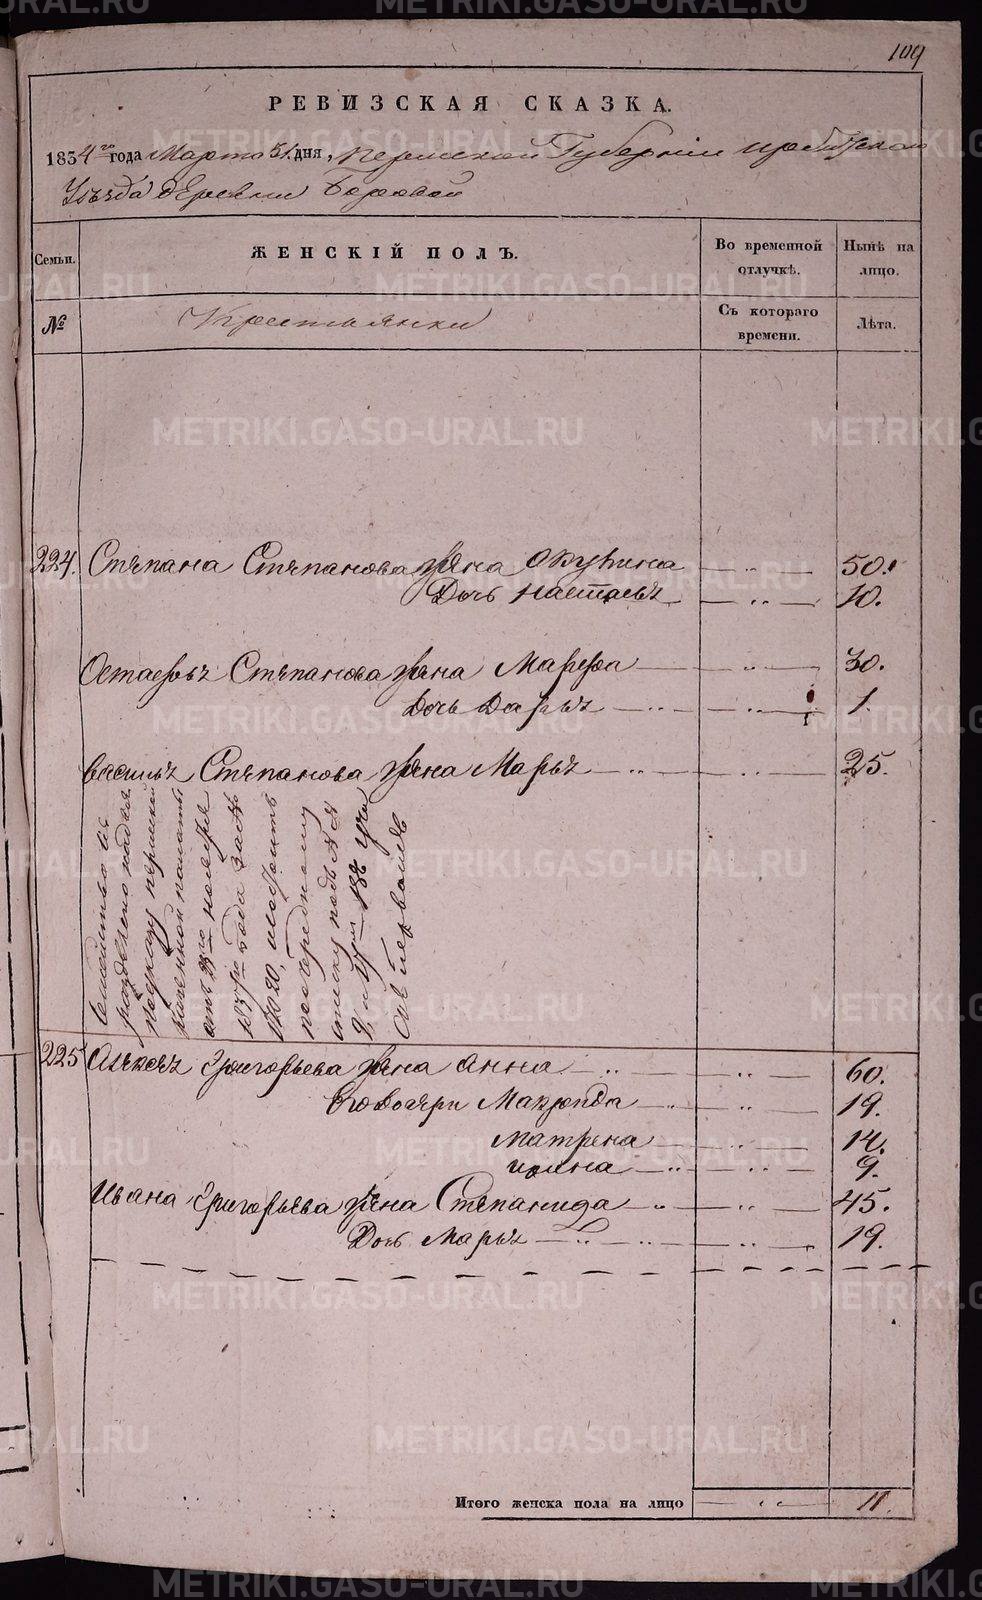 109
РЕВИЗСКАЯ СКАЗКА.
1854го года Марта 31 дня, Пермской Губернiи Ирбитскаго
Уѣзда деревни Боровой
Семьи.
ЖЕНСКIЙ ПОЛЪ.
Во временной отлучкѣ.
Нынѣ на лицо.
№
Крестьянки
Съ котораго времени.
Лѣта.
224. Степана Степанова жена 50.
Дочь Настасья 10.
Остафья Степанова жена Марфа 30.
Дочь Дарья 1.
Василья Степанова жена Марья 25.
Семейство
разделено
по указу пермской
казенной палаты
отъ 23го ноября
года за №
9
225 Алексея Григорьева жена Анна 60.
Его дочери Макрида 19.
Матрена 14.
9.
Ивана Григорьева жена Степанида 45.
Дочь Марья 19.
Итого женска пола на лицо 11.
METRIKI.GASO-URAL.RU